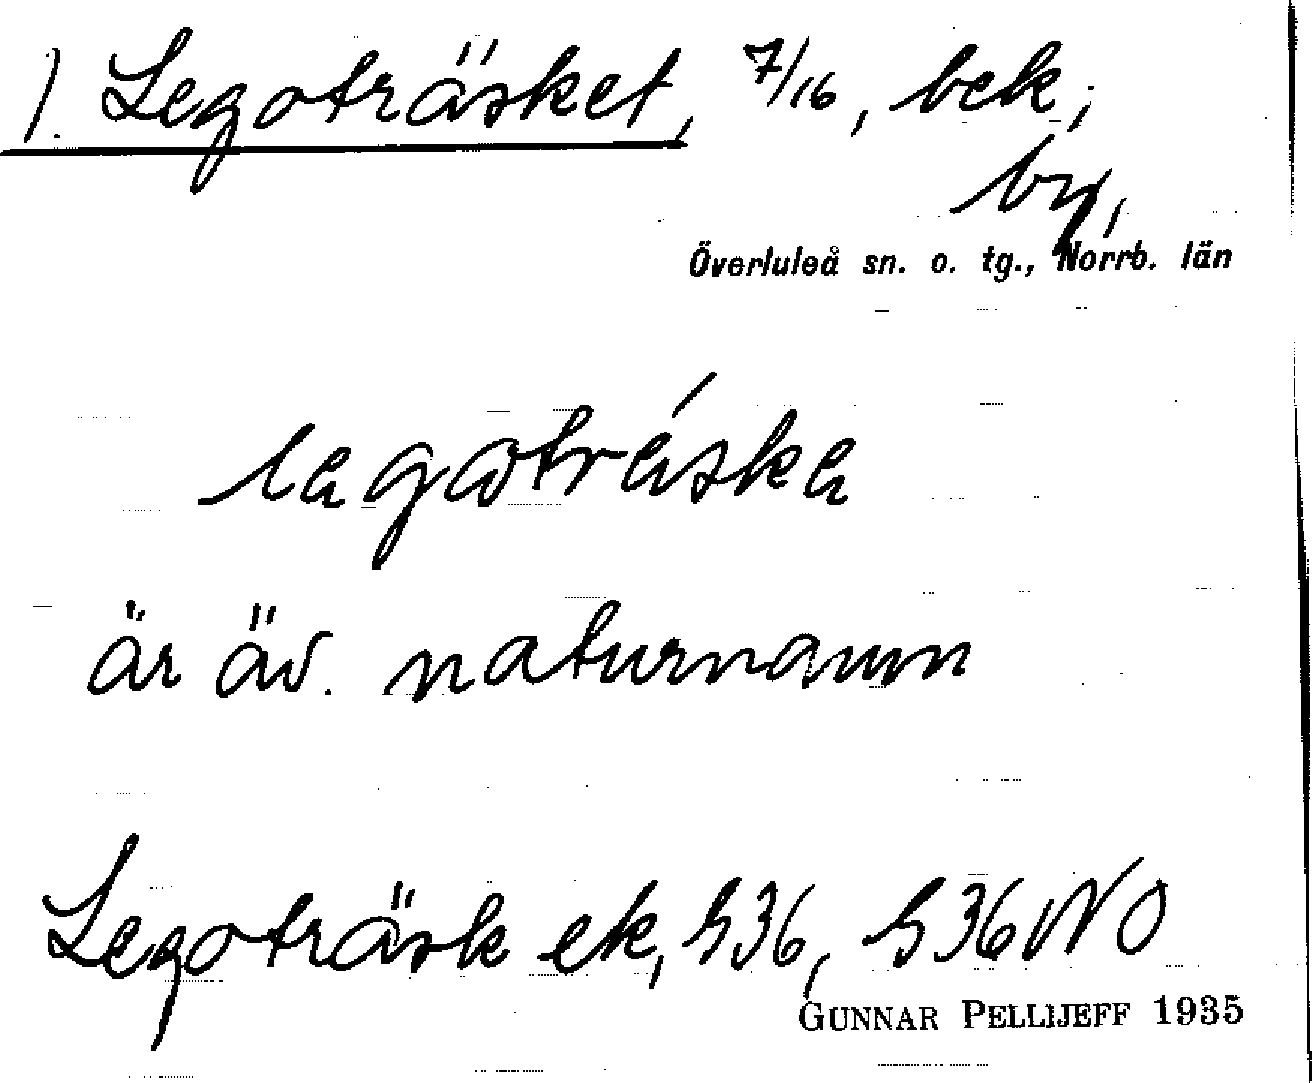 1. Legoträsket, 7/16, bek,
by,
Överluleå sn. o. tg., Norrb. län
lagωtráska
är äv. naturnamn
Legoträsk ek, h36, h36NO
GUNNAR PELLIJEFF 1935